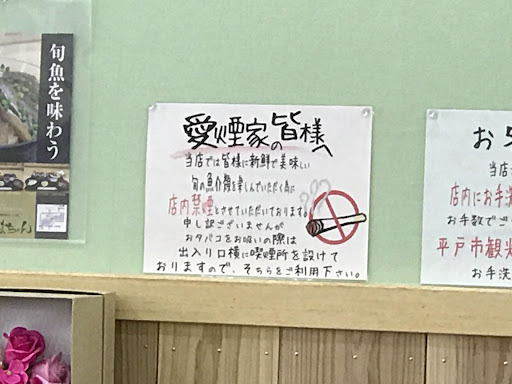 旬魚を味わう
ちゃん
愛煙家の皆様へ
当店では皆様に新鮮で美味しい
旬の魚介類を楽しんでいただく為に
店内禁煙とさせていただいております。
申し訳ございませんが
おタバコをお吸いの際は
出入り口横に喫煙所を設けて
おりますので、そちらをご利用下さい。
お
当店
店内にお手洗
お手数でご
平戸市観光
お手洗